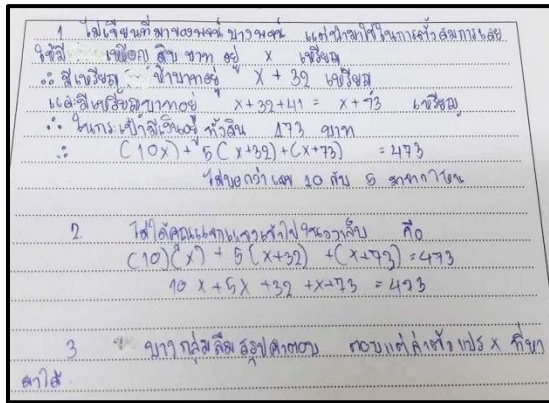 1 ไม่เขียนที่มาของพจน์ บางพจน์ แต่นำมาใช้ในการตั้งสมการเลย
ให้มี เหรียญ สิบ บาท อยู่ x เหรียญ
∴ มีเหรียญ ห้าบาทอยู่ x + 32 เหรียญ
และมีเหรียญบาทอยู่ x+32+41 = x+73 เหรียญ
∴ ในกระเป๋ามีเงินอยู่ ทั้งสิ้น 473 บาท
∴ (10x) + 5(x+32)+(x+73) = 473
ไม่บอกว่าเลข 10 กับ 5 มาจากไหน
2 ไม่ได้คูณแจกแจงเข้าไปในวงเล็บ คือ
(10)(x) + 5(x+32) +(x+73) = 473
10x + 5x +32 +x+73 = 473
3 บางกลุ่มลืมสรุปคำตอบ ตอบแต่ค่าตัวแปร x ที่หา
มาได้